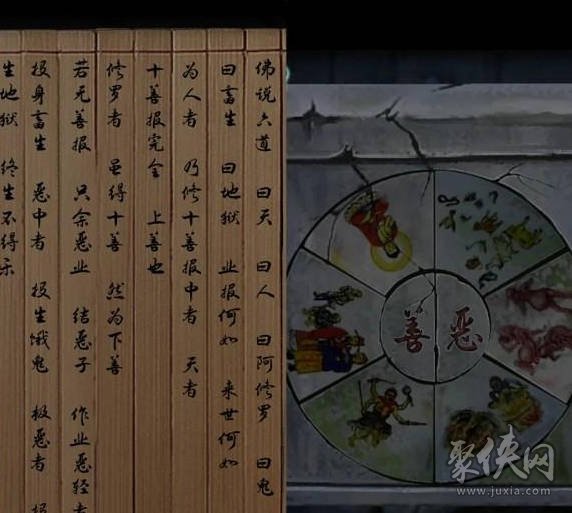 佛说六道 曰天 曰人 曰阿修罗 曰鬼
曰畜生 曰地狱 业报何如 来世何如
为人者 乃修十善报中者 天者
十善报完全 上善也
修罗者 虽得十善 然为下善
若无善报 只余恶业 结恶子 作业恶轻者
投身畜生 恶中者 投生饿鬼 极恶者 投
生地狱 终生不得乐
善 恶
聚侠网
www.juxia.com